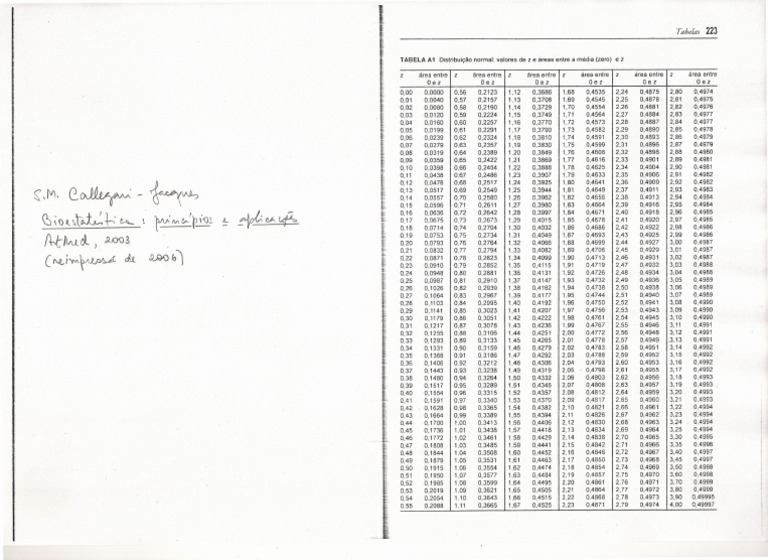 S.M. Callegari-Jacques
Bioestatística: princípios e aplicações
ArtMed, 2003
(reimpressão de 2006)
Tabelas 223
TABELA A1 Distribuição normal: valores de z e áreas entre a média (zero) e z
z área entre z área entre z área entre z área entre z área entre z área entre
0 e z 0 e z 0 e z 0 e z 0 e z 0 e z
0,00 0,0000 0,56 0,2123 1,12 0,3686 1,68 0,4535 2,24 0,4875 2,80 0,4974
0,01 0,0040 0,57 0,2157 1,13 0,3708 1,69 0,4545 2,25 0,4878 2,81 0,4975
0,02 0,0080 0,58 0,2190 1,14 0,3729 1,70 0,4554 2,26 0,4881 2,82 0,4976
0,03 0,0120 0,59 0,2224 1,15 0,3749 1,71 0,4564 2,27 0,4884 2,83 0,4977
0,04 0,0160 0,60 0,2257 1,16 0,3770 1,72 0,4573 2,28 0,4887 2,84 0,4977
0,05 0,0199 0,61 0,2291 1,17 0,3790 1,73 0,4582 2,29 0,4890 2,85 0,4978
0,06 0,0239 0,62 0,2324 1,18 0,3810 1,74 0,4591 2,30 0,4893 2,86 0,4979
0,07 0,0279 0,63 0,2357 1,19 0,3830 1,75 0,4599 2,31 0,4896 2,87 0,4979
0,08 0,0319 0,64 0,2389 1,20 0,3849 1,76 0,4608 2,32 0,4898 2,88 0,4980
0,09 0,0359 0,65 0,2422 1,21 0,3869 1,77 0,4616 2,33 0,4901 2,89 0,4981
0,10 0,0398 0,66 0,2454 1,22 0,3888 1,78 0,4625 2,34 0,4904 2,90 0,4981
0,11 0,0438 0,67 0,2486 1,23 0,3907 1,79 0,4633 2,35 0,4906 2,91 0,4982
0,12 0,0478 0,68 0,2517 1,24 0,3925 1,80 0,4641 2,36 0,4909 2,92 0,4982
0,13 0,0517 0,69 0,2549 1,25 0,3944 1,81 0,4649 2,37 0,4911 2,93 0,4983
0,14 0,0557 0,70 0,2580 1,26 0,3962 1,82 0,4656 2,38 0,4913 2,94 0,4984
0,15 0,0596 0,71 0,2611 1,27 0,3980 1,83 0,4664 2,39 0,4916 2,95 0,4984
0,16 0,0636 0,72 0,2642 1,28 0,3997 1,84 0,4671 2,40 0,4918 2,96 0,4985
0,17 0,0675 0,73 0,2673 1,29 0,4015 1,85 0,4678 2,41 0,4920 2,97 0,4985
0,18 0,0714 0,74 0,2704 1,30 0,4032 1,86 0,4686 2,42 0,4922 2,98 0,4986
0,19 0,0753 0,75 0,2734 1,31 0,4049 1,87 0,4693 2,43 0,4925 2,99 0,4986
0,20 0,0793 0,76 0,2764 1,32 0,4066 1,88 0,4699 2,44 0,4927 3,00 0,4987
0,21 0,0832 0,77 0,2794 1,33 0,4082 1,89 0,4706 2,45 0,4929 3,01 0,4987
0,22 0,0871 0,78 0,2823 1,34 0,4099 1,90 0,4713 2,46 0,4931 3,02 0,4987
0,23 0,0910 0,79 0,2852 1,35 0,4115 1,91 0,4719 2,47 0,4932 3,03 0,4988
0,24 0,0948 0,80 0,2881 1,36 0,4131 1,92 0,4726 2,48 0,4934 3,04 0,4988
0,25 0,0987 0,81 0,2910 1,37 0,4147 1,93 0,4732 2,49 0,4936 3,05 0,4989
0,26 0,1026 0,82 0,2939 1,38 0,4162 1,94 0,4738 2,50 0,4938 3,06 0,4989
0,27 0,1064 0,83 0,2967 1,39 0,4177 1,95 0,4744 2,51 0,4940 3,07 0,4989
0,28 0,1103 0,84 0,2995 1,40 0,4192 1,96 0,4750 2,52 0,4941 3,08 0,4990
0,29 0,1141 0,85 0,3023 1,41 0,4207 1,97 0,4756 2,53 0,4943 3,09 0,4990
0,30 0,1179 0,86 0,3051 1,42 0,4222 1,98 0,4761 2,54 0,4945 3,10 0,4990
0,31 0,1217 0,87 0,3078 1,43 0,4236 1,99 0,4767 2,55 0,4946 3,11 0,4991
0,32 0,1255 0,88 0,3106 1,44 0,4251 2,00 0,4772 2,56 0,4948 3,12 0,4991
0,33 0,1293 0,89 0,3133 1,45 0,4265 2,01 0,4778 2,57 0,4949 3,13 0,4991
0,34 0,1331 0,90 0,3159 1,46 0,4279 2,02 0,4783 2,58 0,4951 3,14 0,4992
0,35 0,1368 0,91 0,3186 1,47 0,4292 2,03 0,4788 2,59 0,4952 3,15 0,4992
0,36 0,1406 0,92 0,3212 1,48 0,4306 2,04 0,4793 2,60 0,4953 3,16 0,4992
0,37 0,1443 0,93 0,3238 1,49 0,4319 2,05 0,4798 2,61 0,4955 3,17 0,4992
0,38 0,1480 0,94 0,3264 1,50 0,4332 2,06 0,4803 2,62 0,4956 3,18 0,4993
0,39 0,1517 0,95 0,3289 1,51 0,4345 2,07 0,4808 2,63 0,4957 3,19 0,4993
0,40 0,1554 0,96 0,3315 1,52 0,4357 2,08 0,4812 2,64 0,4959 3,20 0,4993
0,41 0,1591 0,97 0,3340 1,53 0,4370 2,09 0,4817 2,65 0,4960 3,21 0,4993
0,42 0,1628 0,98 0,3365 1,54 0,4382 2,10 0,4821 2,66 0,4961 3,22 0,4994
0,43 0,1664 0,99 0,3389 1,55 0,4394 2,11 0,4826 2,67 0,4962 3,23 0,4994
0,44 0,1700 1,00 0,3413 1,56 0,4406 2,12 0,4830 2,68 0,4963 3,24 0,4994
0,45 0,1736 1,01 0,3438 1,57 0,4418 2,13 0,4834 2,69 0,4964 3,25 0,4994
0,46 0,1772 1,02 0,3461 1,58 0,4429 2,14 0,4838 2,70 0,4965 3,30 0,4995
0,47 0,1808 1,03 0,3485 1,59 0,4441 2,15 0,4842 2,71 0,4966 3,35 0,4996
0,48 0,1844 1,04 0,3508 1,60 0,4452 2,16 0,4846 2,72 0,4967 3,40 0,4997
0,49 0,1879 1,05 0,3531 1,61 0,4463 2,17 0,4850 2,73 0,4968 3,45 0,4997
0,50 0,1915 1,06 0,3554 1,62 0,4474 2,18 0,4854 2,74 0,4969 3,50 0,4998
0,51 0,1950 1,07 0,3577 1,63 0,4484 2,19 0,4857 2,75 0,4970 3,60 0,4998
0,52 0,1985 1,08 0,3599 1,64 0,4495 2,20 0,4861 2,76 0,4971 3,70 0,4999
0,53 0,2019 1,09 0,3621 1,65 0,4505 2,21 0,4864 2,77 0,4972 3,80 0,4999
0,54 0,2054 1,10 0,3643 1,66 0,4515 2,22 0,4868 2,78 0,4973 3,90 0,49995
0,55 0,2088 1,11 0,3665 1,67 0,4525 2,23 0,4871 2,79 0,4974 4,00 0,49997